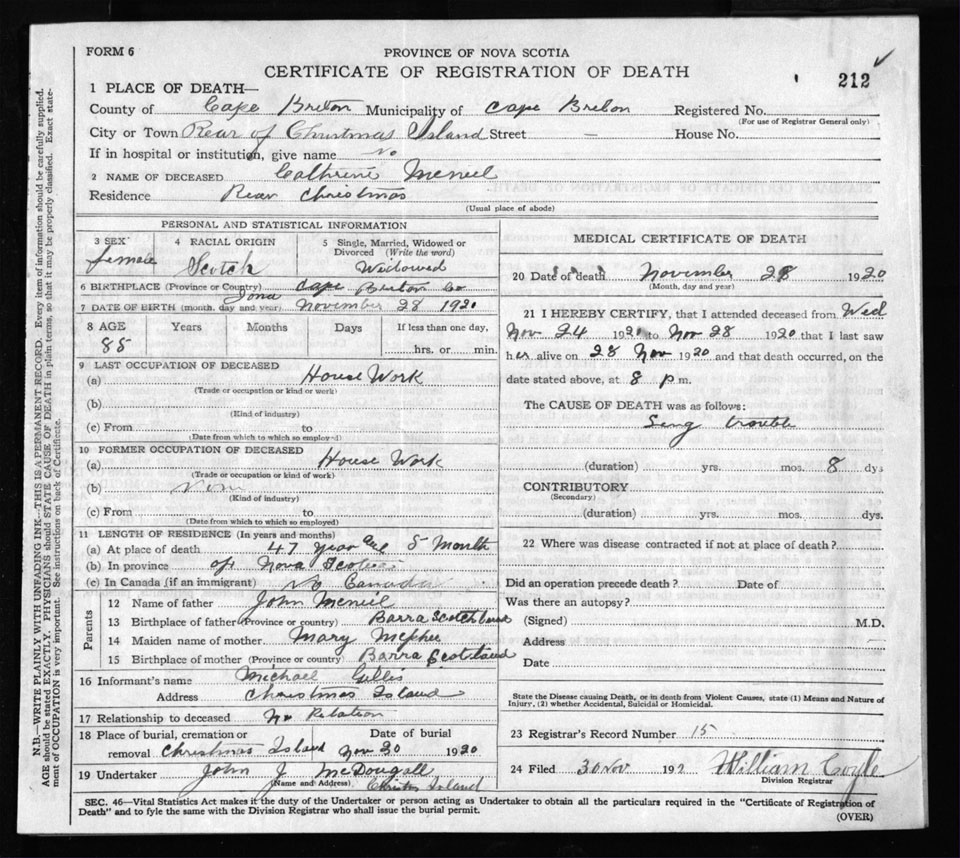 FORM 6
PROVINCE OF NOVA SCOTIA
CERTIFICATE OF REGISTRATION OF DEATH
212
1 PLACE OF DEATH—
County of Cape Breton Municipality of Cape Breton Registered No.
(For use of Registrar General only)
City or Town Rear of Christmas Island Street — House No.
If in hospital or institution, give name no
2 NAME OF DECEASED Cathrine McNeil
Residence Rear Christmas
(Usual place of abode)
PERSONAL AND STATISTICAL INFORMATION
3 SEX female
4 RACIAL ORIGIN Scotch
5 Single, Married, Widowed or Divorced (Write the word) Widowed
6 BIRTHPLACE (Province or Country) Cape Breton Co
Iona
7 DATE OF BIRTH (month, day and year) November 28 1920
8 AGE Years Months Days If less than one day,
85 hrs. or min.
9 LAST OCCUPATION OF DECEASED
(a) House Work
(Trade or occupation or kind or work)
(b)
(Kind of industry)
(c) From to
(Date from which to which so employed)
10 FORMER OCCUPATION OF DECEASED
(a) House Work
(Trade or occupation or kind of work)
(b)
(Kind of industry)
(c) From to
(Date from which to which so employed)
11 LENGTH OF RESIDENCE (In years and months)
(a) At place of death 47 year 5 Month
(b) In province of Nova Scotia
(c) In Canada (if an immigrant) Canada
Parents
12 Name of father John McNeil
13 Birthplace of father (Province or country) Barra Scotland
14 Maiden name of mother Mary McPhee
15 Birthplace of mother (Province or country) Barra Scotland
16 Informant's name Michael Gillis
Address Christmas Island
17 Relationship to deceased No Relation
18 Place of burial, cremation or Date of burial
removal Christmas Island Nov 30 1920
19 Undertaker John J McDougall
(Name and Address) Christmas Island
MEDICAL CERTIFICATE OF DEATH
20 Date of death November 28 1920
(Month, day and year)
21 I HEREBY CERTIFY, that I attended deceased from Wed
Nov 24 1920 to Nov 28 1920 that I last saw
her alive on 28 Nov 1920 and that death occurred, on the
date stated above, at 8 p m.
The CAUSE OF DEATH was as follows:
Lung trouble
(duration) yrs. mos. 8 dys
CONTRIBUTORY
(Secondary)
(duration) yrs. mos. dys.
22 Where was disease contracted if not at place of death?
Did an operation precede death? Date of
Was there an autopsy?
(Signed) M.D.
Address
Date
State the Disease causing Death, or in death from Violent Causes, state (1) Means and Nature of
Injury, (2) whether Accidental, Suicidal or Homicidal.
23 Registrar's Record Number 15
24 Filed 30 Nov 192 William Coyle
Division Registrar
SEC. 46—Vital Statistics Act makes it the duty of the Undertaker or person acting as Undertaker to obtain all the particulars required in the "Certificate of Registration of
Death" and to fyle the same with the Division Registrar who shall issue the burial permit.
(OVER)
N.B.—WRITE PLAINLY WITH UNFADING INK—THIS IS A PERMANENT RECORD. Every item of information should be carefully supplied.
AGE should be stated EXACTLY. PHYSICIANS should STATE CAUSE OF DEATH in plain terms, so that it may be properly classified. Exact state-
ment of OCCUPATION is very important. See instructions on back of Certificate.